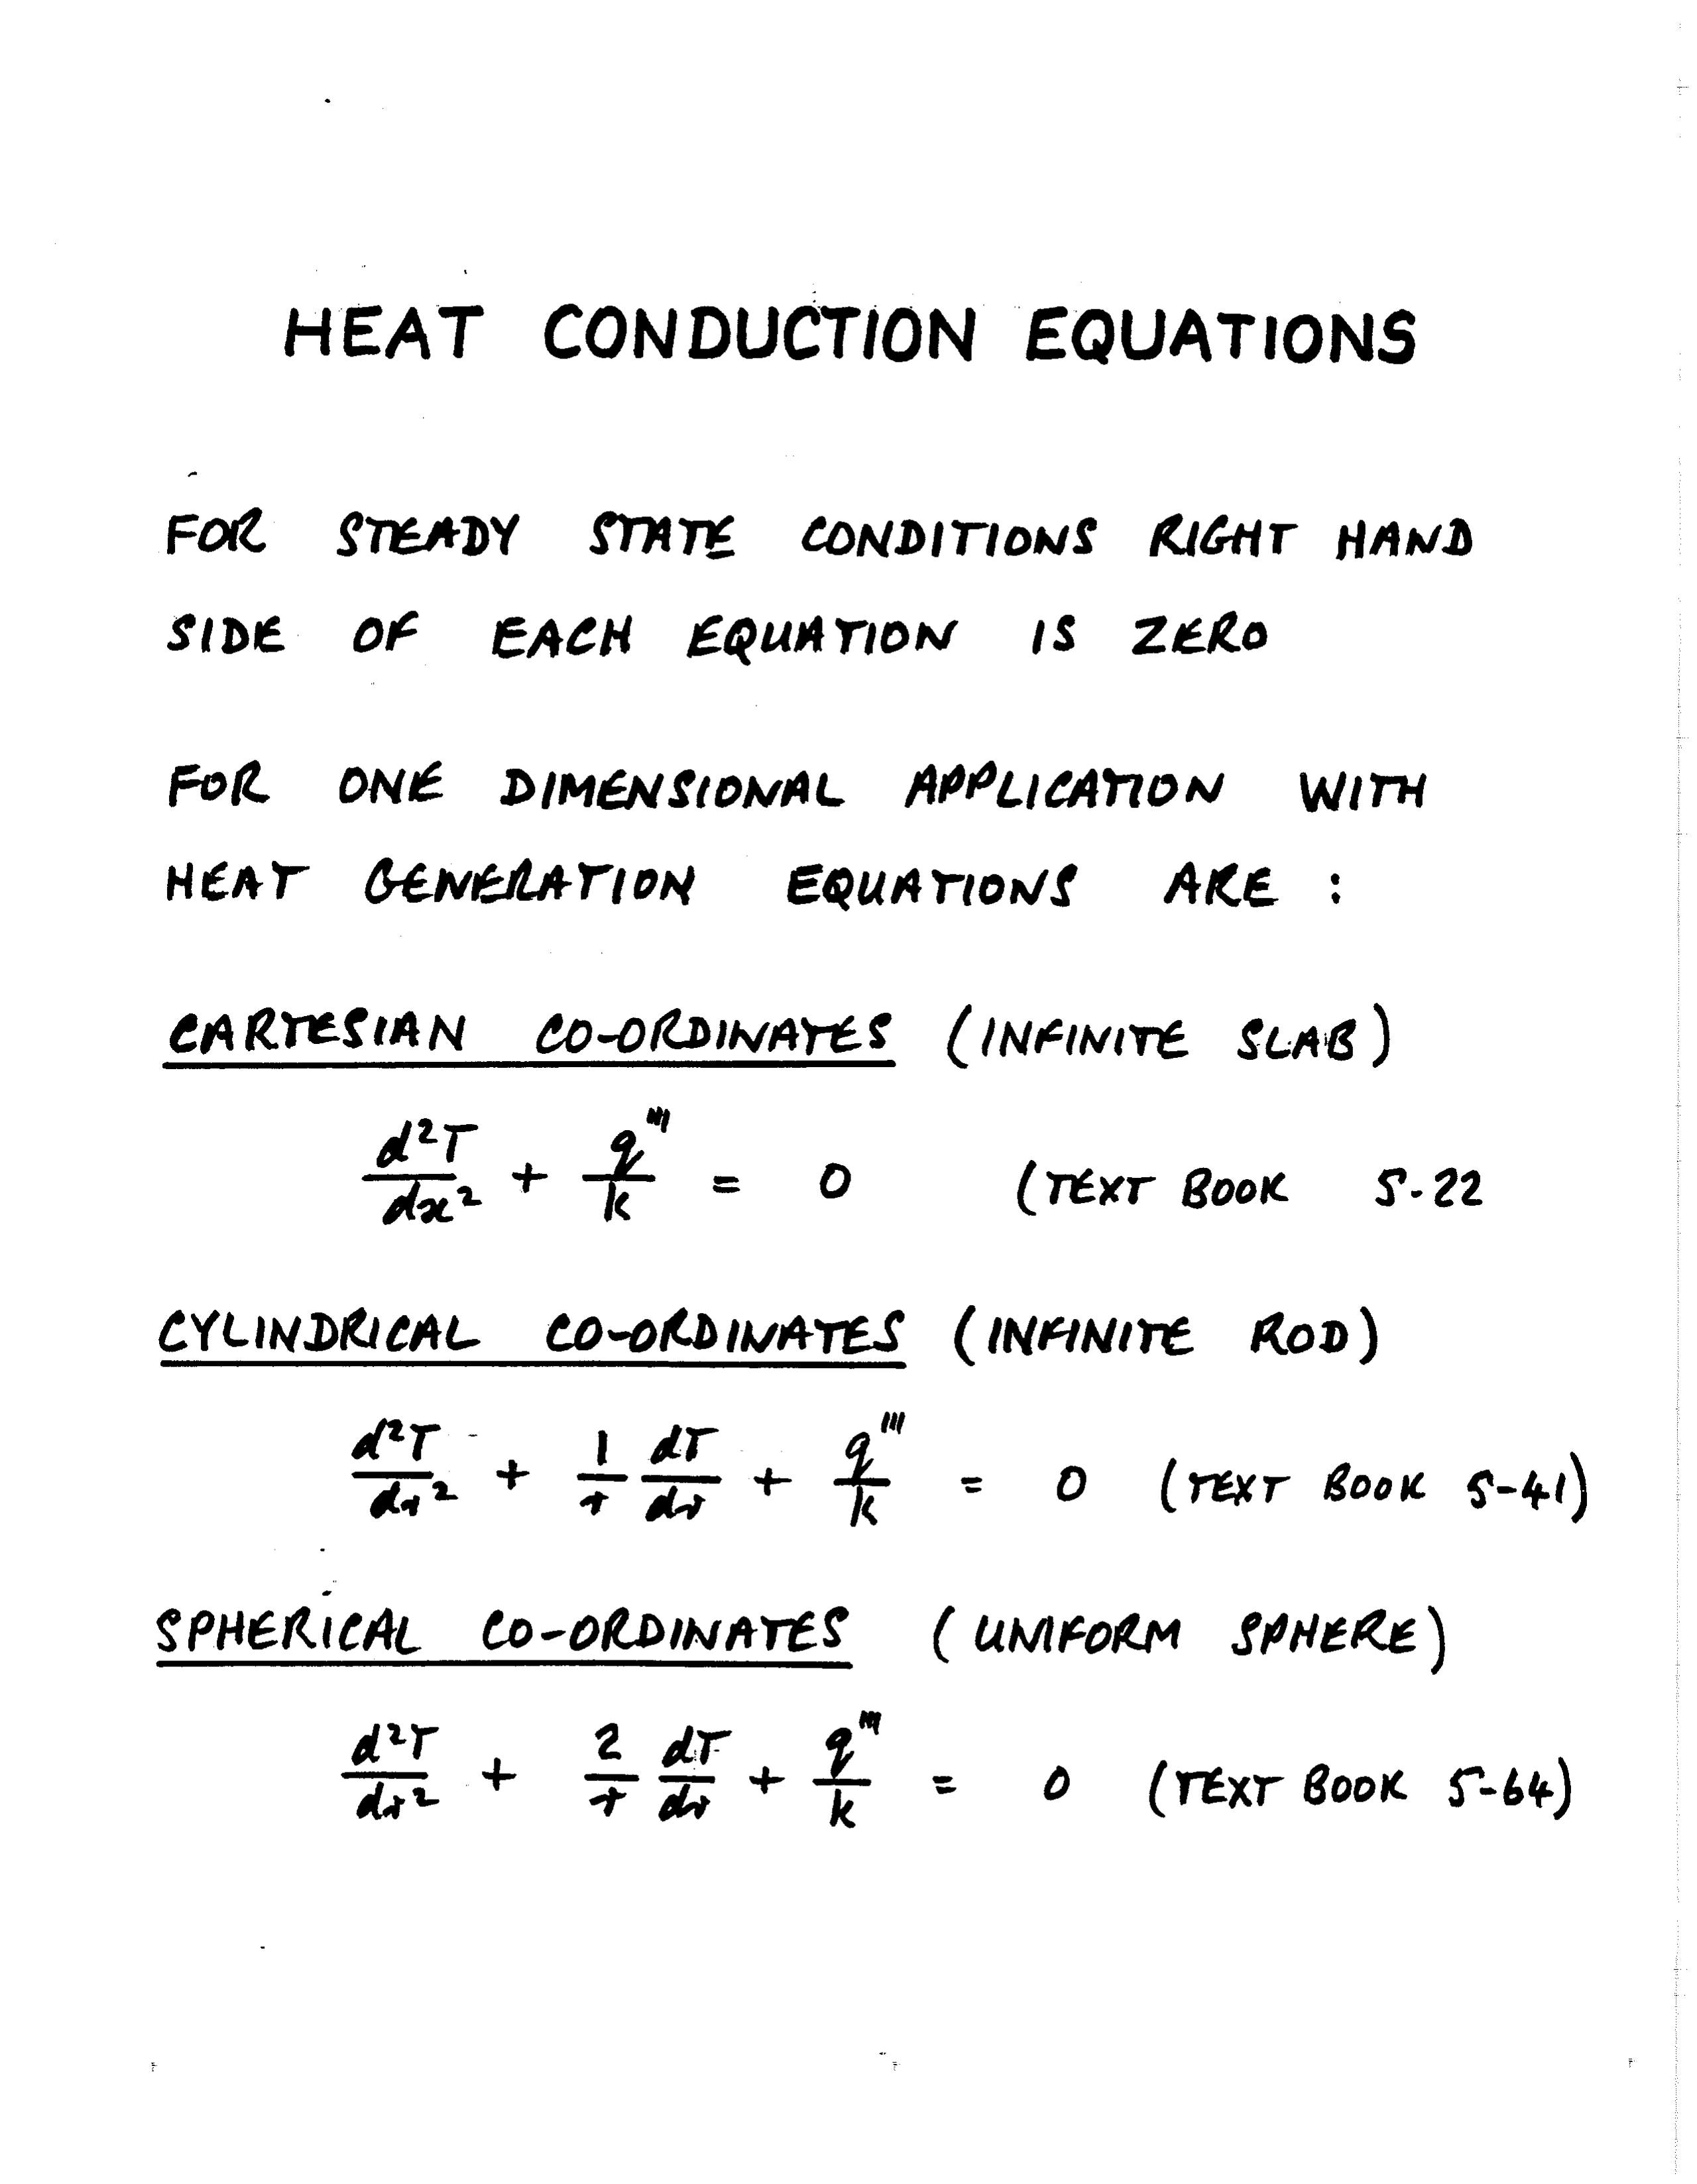 HEAT CONDUCTION EQUATIONS
FOR STEADY STATE CONDITIONS RIGHT HAND
SIDE OF EACH EQUATION IS ZERO
FOR ONE DIMENSIONAL APPLICATION WITH
HEAT GENERATION EQUATIONS ARE :
CARTESIAN CO-ORDINATES (INFINITE SLAB)
d²T/dx² + q'''/k = 0 (TEXT BOOK 5-22
CYLINDRICAL CO-ORDINATES (INFINITE ROD)
d²T/dr² + 1/r dT/dr + q'''/k = 0 (TEXT BOOK 5-41)
SPHERICAL CO-ORDINATES (UNIFORM SPHERE)
d²T/dr² + 2/r dT/dr + q'''/k = 0 (TEXT BOOK 5-64)